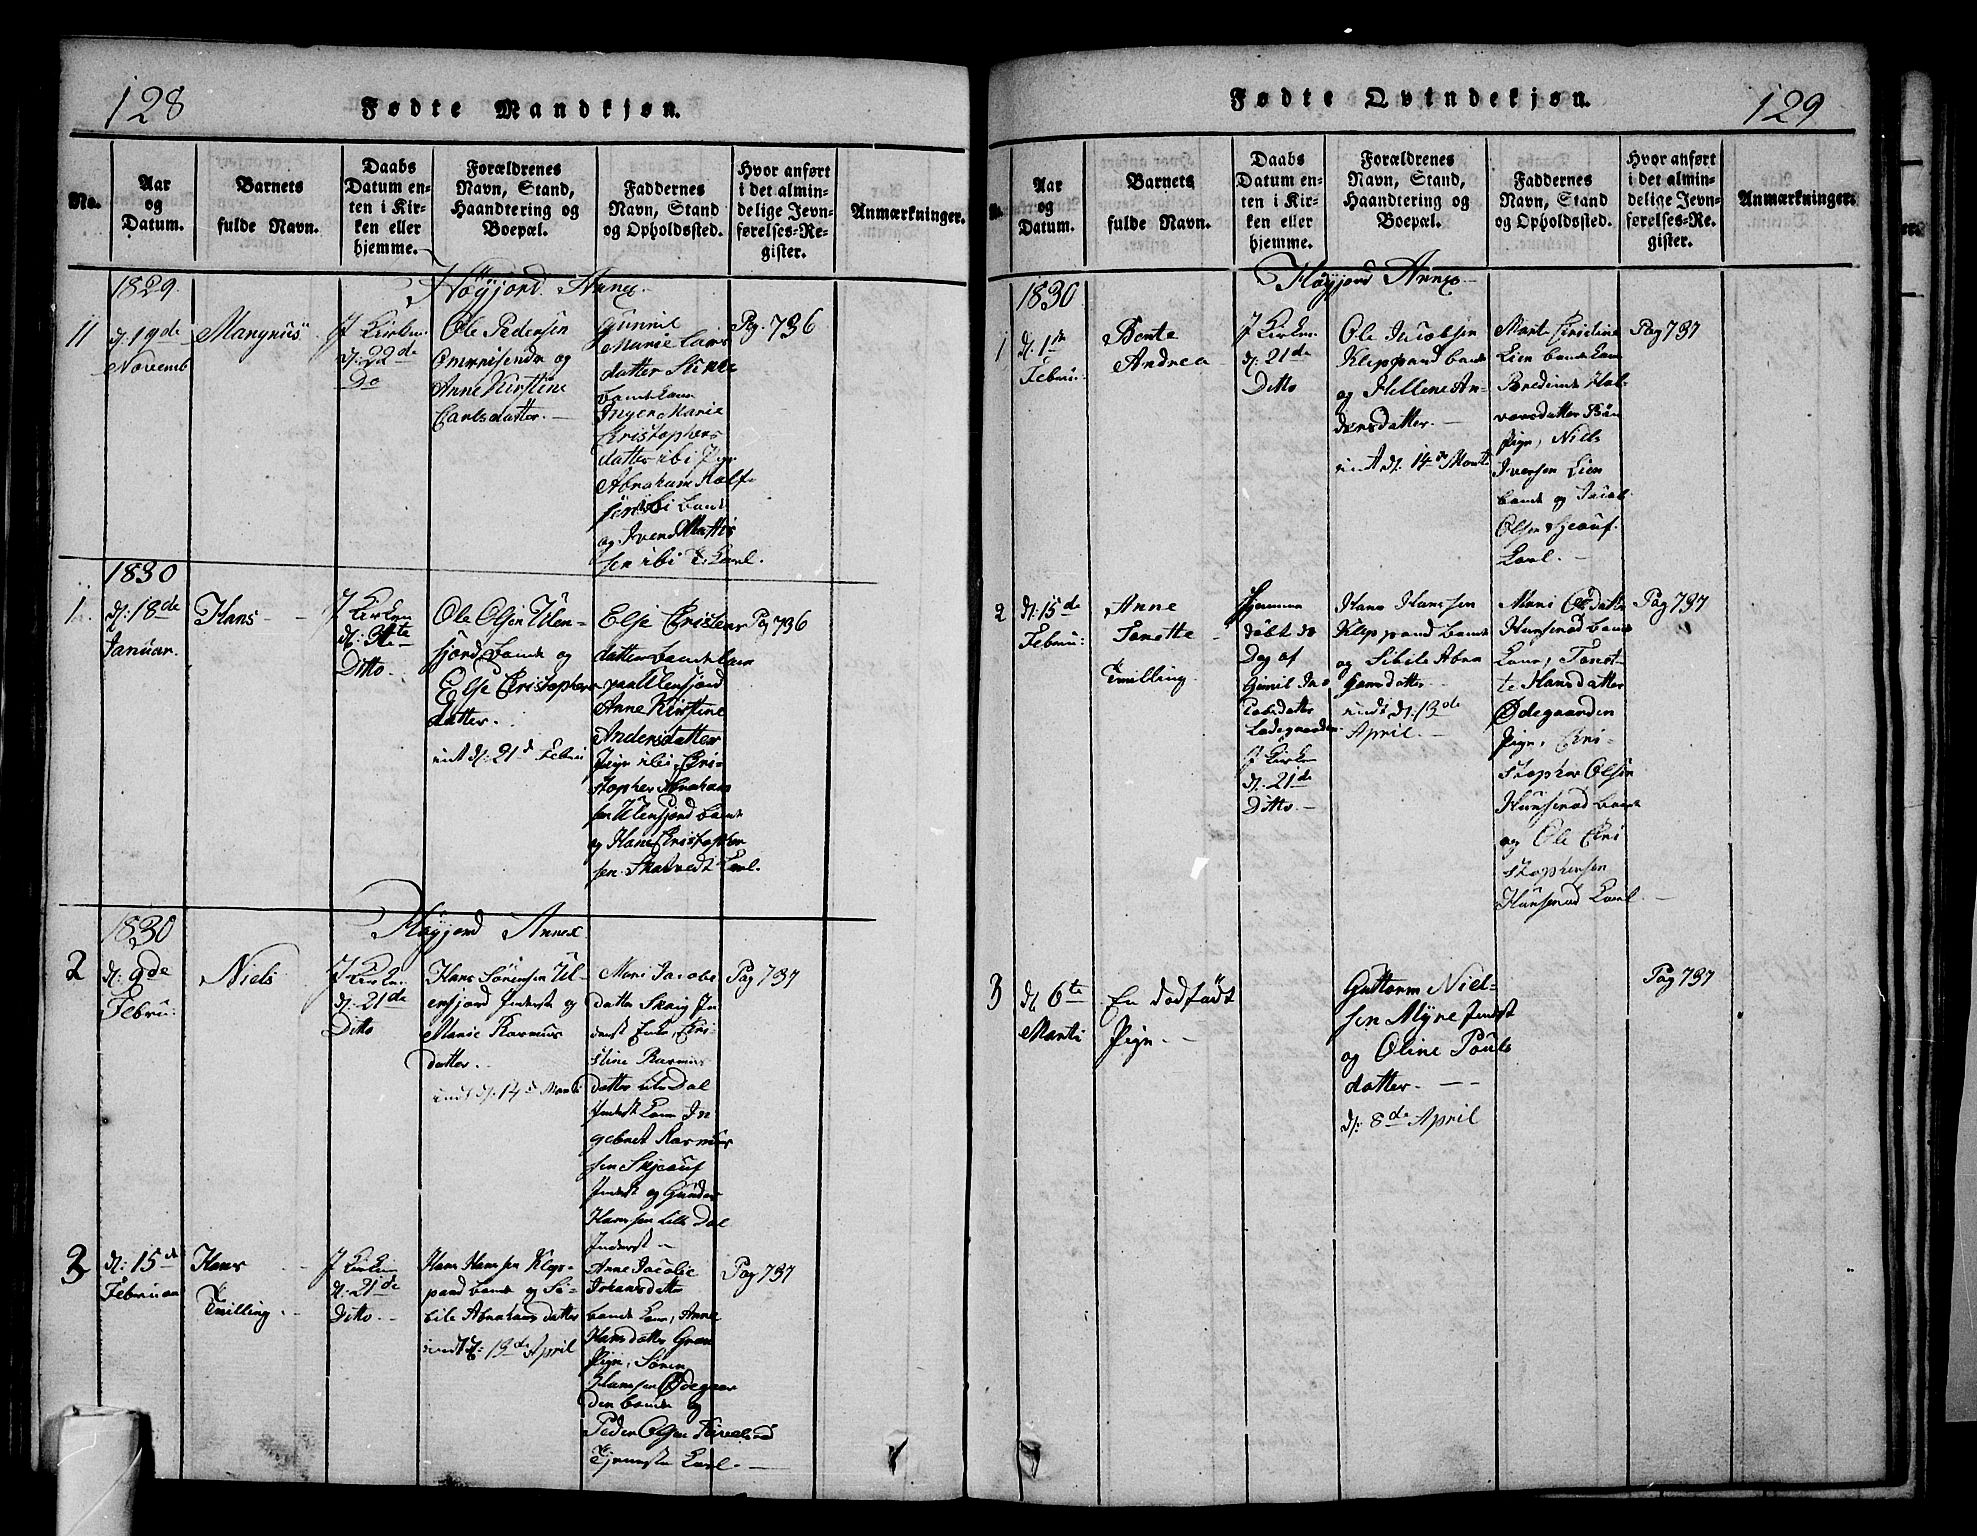 128
Fødte Mandkjøn.
No.
Aar
og
Datum.
Barnets
fulde Navn.
Daabs
Datum en-
ten i Kir-
ken eller
hjemme.
Forældrenes
Navn, Stand,
Haandtering og
Boepæl.
Faddernes
Navn, Stand
og Opholdssted.
Hvor anført
i det almin-
delige Jevn-
førelses-Re-
gister.
Anmærkninger.
1829
Høyjord Annex.
11
d: 19de
Novemb
Mangnus
I Kirken
d: 22de
Do
Ole Pedersen
og
Anne Kirstine
Carlsdatter. -
Gunnil
Marie Lars
datter
Inger Marie
Christophers
datter ibi Pige
Abraham
og Ivend Mattis
sen ibi
Pag. 736
1830
1.
d: 18de
Januar.
Hans -
I Kirken
d: 31te
Ditto.
Ole Olsen Ulen-
sjord bonde og
Else Christophers
datter.
d: 21d Febru
Else Christens
datter bondekone
paa Ulensjord
Anne Kirstine
Andersdatter
Pige ibi, Chri-
stopher Abrahams
sen Ulensjord bonde
og Hans Christopher
sen Skatvedt Karl.
Pag 736
1830
Høyjord Annex
2
d: 9de
Febru:
Niels
I Kirken
d: 21de
Ditto
Hans Sørensen Ul-
ensjord Inderst og
Marie Rasmus
datter.
d: 14de Marti
Mari Jacobs
datter Skaug In
derst Enke, Chri
stine Rasmus
datter Liledal
Inderst Kone In
gebret Rasmus
sen Skjeauf
Inderst og Gunder
Hansen Lille Dal
Inderst -
Pag 737
3
d: 15de
Februar
Hans
Tvilling. -
I Kirken
d: 21de
Ditto. -
Hans Hansen Klop-
pand bonde og Si-
bile Abrahams datter
d: 13de April
Anne Jacobie
Johansdatter
bonde Kone, Anne
Hansdatter
Pige, Søren
Hansen Ødegaar
den bonde og
Peder Olsen
Karl. -
Pag 737
129
Fødte Qvindekjøn.
No.
Aar
og
Datum.
Barnets
fulde Navn.
Daabs
Datum en-
ten i Kir-
ken eller
hjemme.
Forældrenes
Navn, Stand,
Haandtering og
Boepæl.
Faddernes
Navn, Stand
og Opholdssted.
Hvor anført
i det almin-
delige Jevn-
førelses-Re-
gister.
Anmærkninger.
1830
Høyjord Annex
1
d: 1ste
Febru:
Bente
Andrea
I Kirken
d: 21de
Ditto
Ole Jacobsen
Kleppand bonde
og Hellene An-
dersdatter. -
d: 14de Marti
Mart Christine
Lien bondekone
Bredine Hal-
vorsdatter
Pige, Niels
Iversen Lien
bonde og Jacob
Olsen Skjeauf
Karl. -
Pag 737
2
d: 15de
Febru:
Anne
Tonette
Tvilling.
Hjemme
døbt
Dag af
Ladegaarden
I Kirken
d: 21de
Ditto. -
Hans Hansen
Kleppand bonde
og Sibile Abra
hamsdatter. -
d: 13de
April. -
Mari Olsdatter
Hunserød bonde
Kone, Tonet-
te Hansdatter
Ødegaarden
Pige, Chri-
stopher Olsen
Hunserød bonde
og Ole Chri
stophersen
Hunserød Karl. -
Pag 737
3
d: 6te
Marti
En dødfødt
Pige. -
Guttorm Niel-
sen Myre Inderst
og Oline Pouls
datter. -
d: 8de April
Pag 737